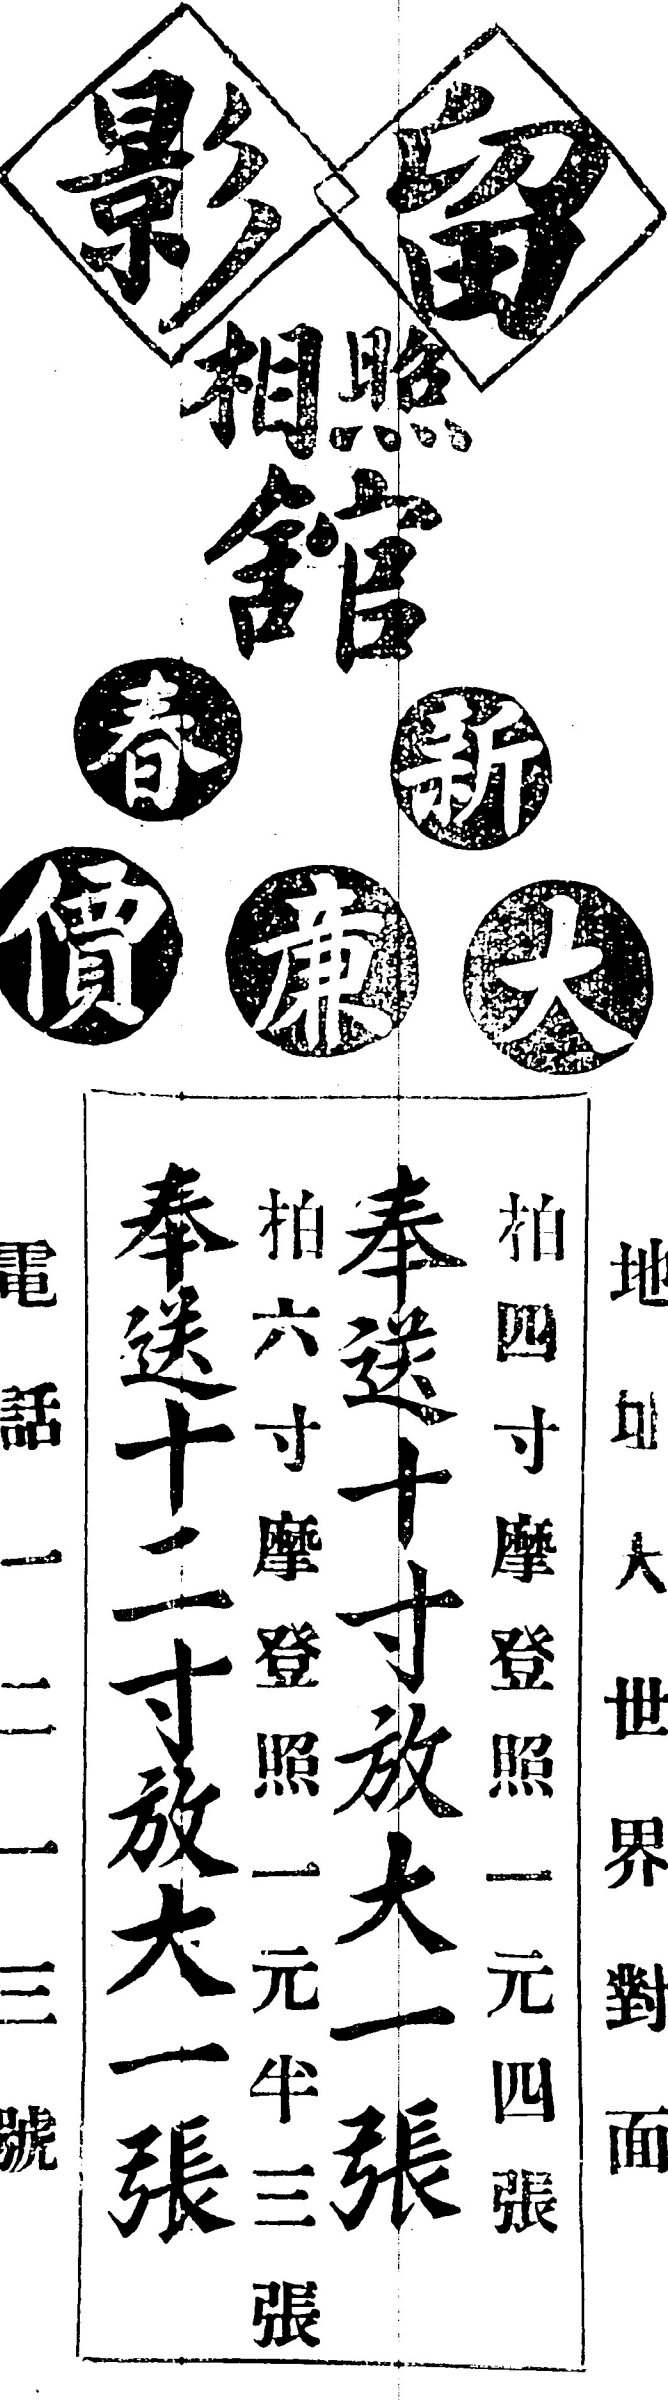 留影
照相
館
新春
大廉價
地址大世界對面
拍四寸摩登照一元四張
奉送十寸放大一張
拍六寸摩登照一元半三張
奉送十二寸放大一張
電話一二一三號